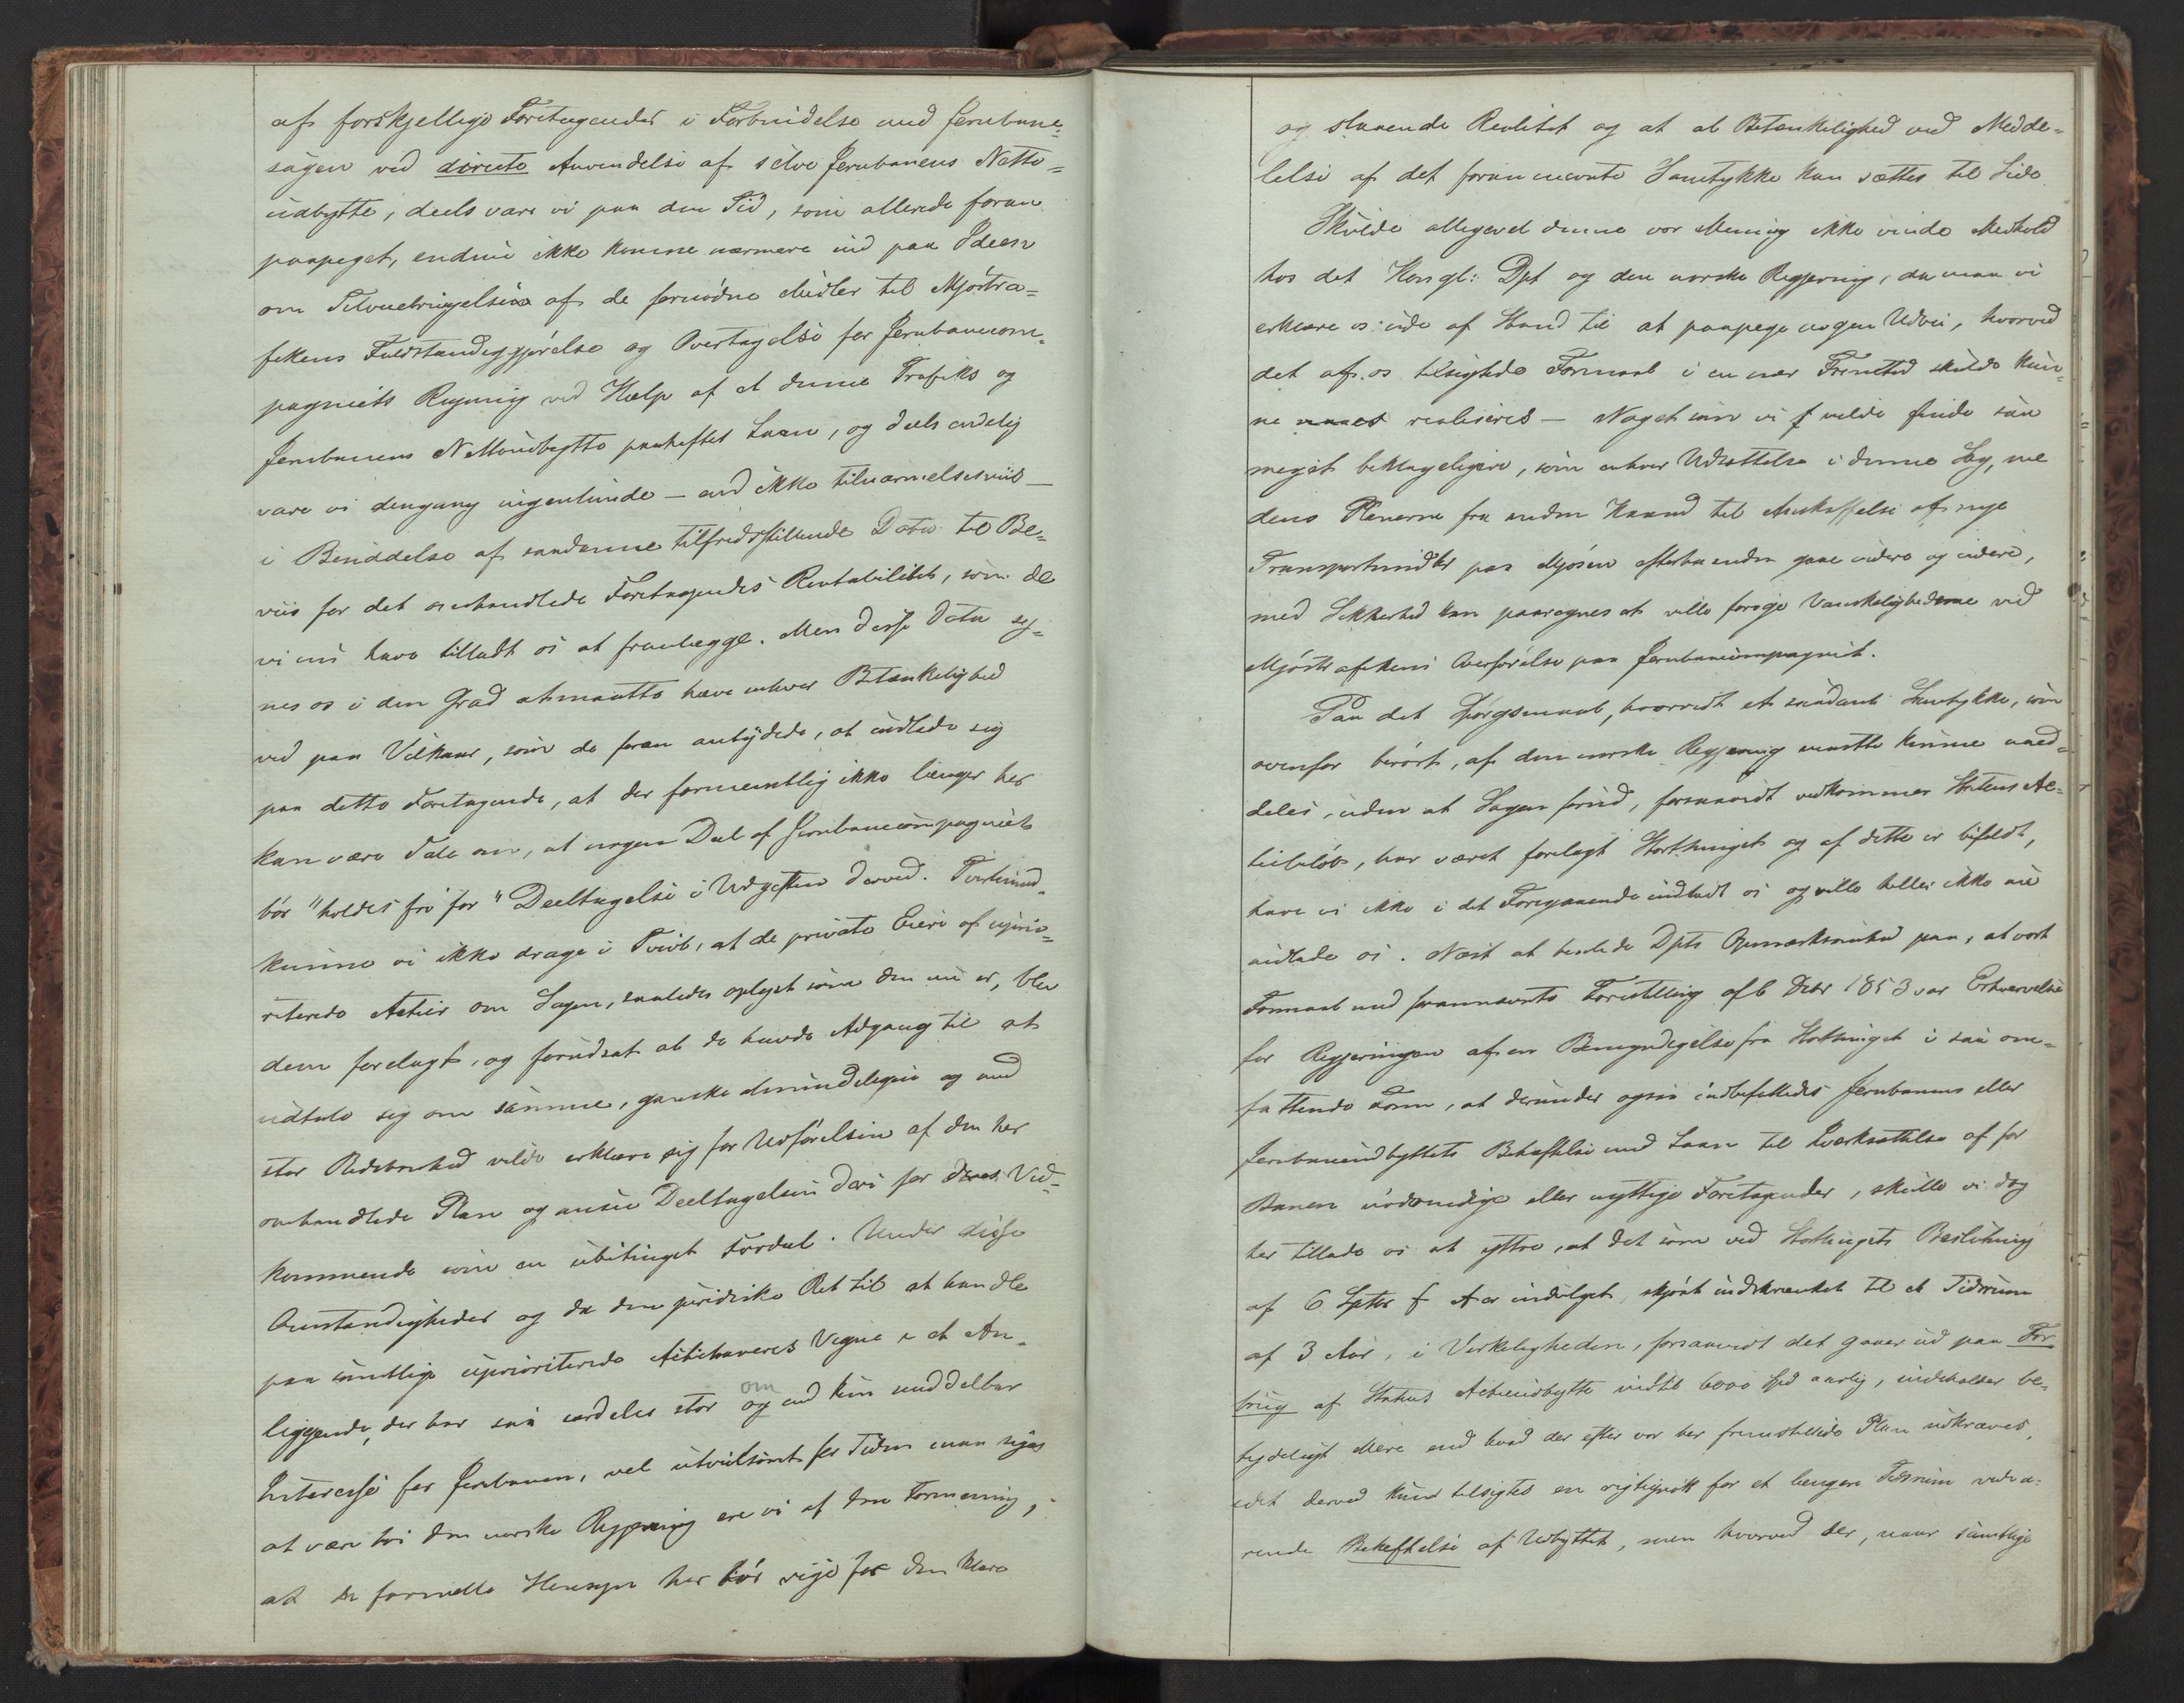 af forskjellige Foretagender i Forbindelse med Jernbane-
sagen ved directe Anvendelse af selve Jernbanens Netto-
udbytte, deels vare vi paa den Tid, som allerede foran
paapeget, endnu ikke komne nærmere ind paa Ideen
om Tilveiebringelsen af de fornødne Midler til Mjøstra-
fikens Fuldstændiggjørelse og Overtagelse for Jernbanecom-
pagniets Regning ved Hælp af et denne Trafiks og
Jernbanens Nettoudbytte paaheftet Laan, og deels endelig
vare vi dengang ingenlunde – end ikke tilnærmelsesviis –
i Besiddelse af saadanne tilfredsstillende Data til Be-
viis for det omhandlede Foretagendes Rentabilitet, som de
vi nu have tilladt os at fremlægge. Men disse Data sy-
nes os i den Grad at maatte hæve enhver Betænkelighed
ved paa Vilkaar, som de foran antydede, at indlade sig
paa dette Foretagende, at der formeentlig ikke længer her
kan være Tale om, at nogen Deel af Jernbanecompagniets
bør "holdes fri for" Deeltagelse i Udgiften derved. Tvertimod
kunne vi ikke drage i Tvivl, at de private Eiere af uprio-
riterede Actier om Sagen, saaledes oplyst som den nu er, blev
dem forelagt, og forudsat at de havde Adgang til at
udtale sig om samme, ganske almindeligen og med
stor Redebonhed vilde erklære sig for Udførelsen af den her
omhandlede Plan og ansee Deeltagelsen deri for deres Ved-
kommende som en ubetinget Fordeel. Under disse
Omstændigheder og da den juridiske Ret til at handle
paa samtlige uprioriterede Actiehaveres Vegne i et An-
liggende, der har saa særdeles stor om
og end kun middelbar
Interesse for Jernbanen, vel utvivlsomt for Tiden maa siges
at være hos den norske Regjering ere vi af den Formening,
at de formelle Hensyn her bør vige for den klare
og slaaende Realitet og at al Betænkelighed ved Medde-
lelse af det forannævnte Samtykke kan sættes til Side
Skulde alligevel denne vor Mening ikke vinde Medhold
hos det Kongl: Dpt og den norske Regjering, da maa vi
erklære os ude af Stand til at paapege nogen Udvei, hvorved
det af os tilsigtede Formaal i en nær Fremtid skulde kun-
ne realiseres – Noget som vi vilde finde saa
meget beklageligere, som enhver Udsættelse i denne Sag, me
dens Planerne fra anden Kand til Anskaffelse af nye
Transportmidler paa Mjøsen efterhaanden gaae videre og videre,
med Sikkerhed kan paaregnes at ville forøge Vanskelighederne ved
Mjøstrafikens Overførelse paa Jernbanecompagniet.
Paa det Spørgsmaal, hvorvidt et saadant Samtykke, som
ovenfor berørt, af den norske Regjering maatte kunne med-
deles, uden at Sagen forud, forsaavidt vedkommer Statens Ac-
tiebeløb, har været forelagt Storthinget og af dette er bifaldt,
have vi ikke i det Foregaaende indladt os og ville heller ikke nu
indlade os. Næst at henlede Dpts Opmærksomhed paa, at vort
Formaal med forannævnte Forestilling af 6 Decbr 1853 var Erhvervelse
for Regjeringen af en Bemyndigelse fra Storthinget i saa om-
fattende Form, at derunder ogsaa indbefattedes Jernbanens eller
Jernbaneudbyttets Behæftelse med Laan til Iværksættelse af for
Banen nødvendige eller nyttige Foretagender, skulle vi dog
her tillade os at yttre, at det som ved Storthingets Beslutning
af 6 Septbr f. A. er indvilget, skjønt indskrænket til et Tidsrum
af 3 Aar, i Virkeligheden, forsaavidt det gaaer ud paa For-
brug af Statens Actieudbytte indtil 6000 Spd aarlig, indeholder be-
tydeligt Mere end hvad der efter vor her fremstillede Plan udkræves,
idet derved kun tilsigtes en rigtignok for et længere Tidsrum veda-
rende Behæftelse af Udbyttet, men hvorved der, naar samtlige